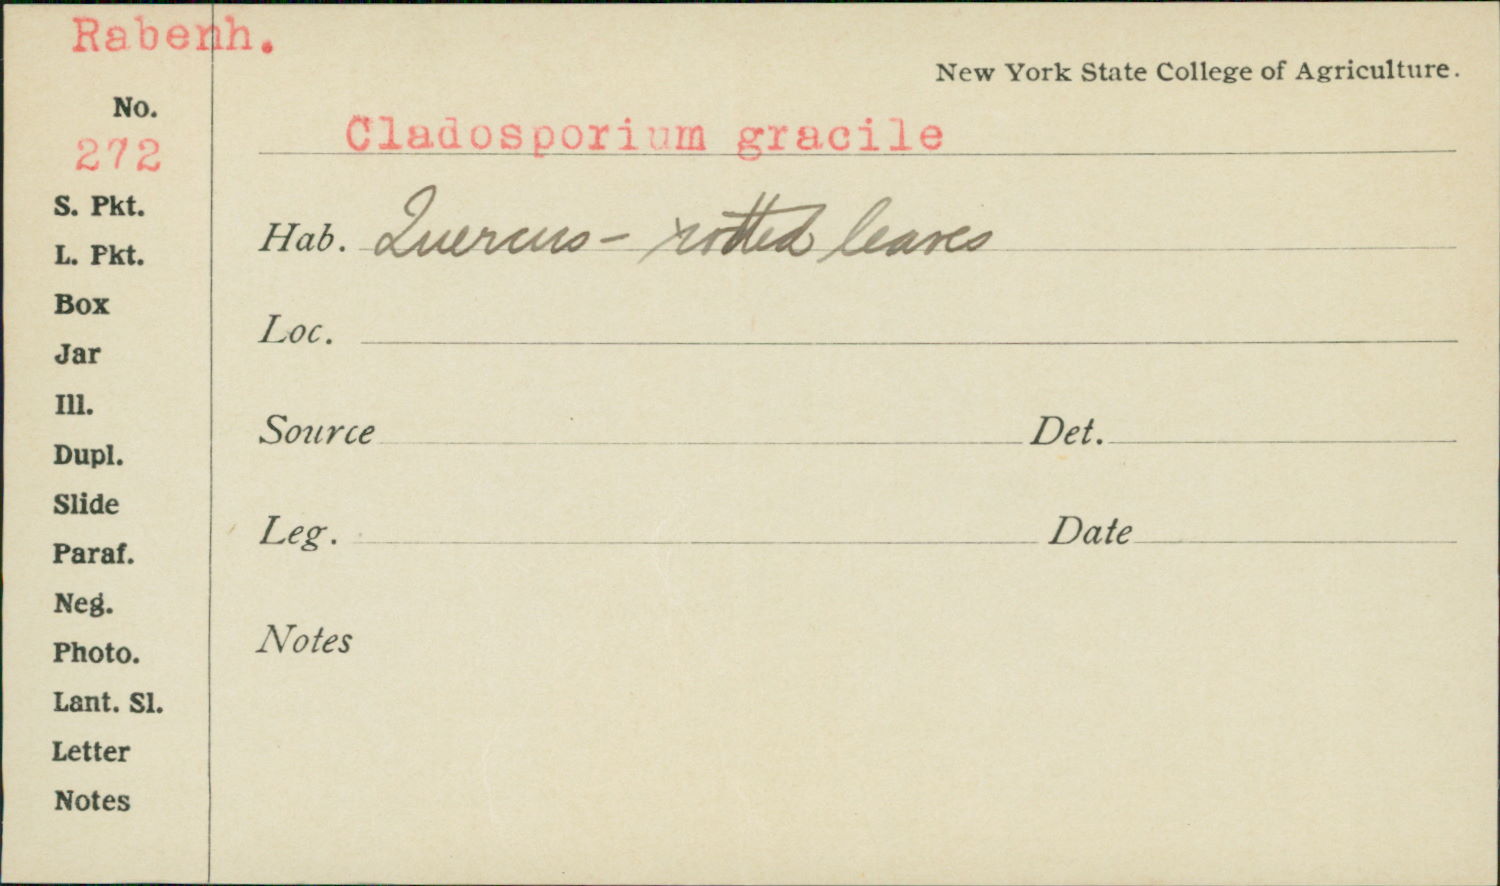 Rabenh.
New York State College of Agriculture.
No.
272
Cladosporium gracile
S. Pkt.
L. Pkt.
Box
Jar
Ill.
Dupl.
Slide
Paraf.
Neg.
Photo.
Lant. Sl.
Letter
Notes
Hab. Quercus - rotted leaves
Loc.
Source Det.
Leg. Date
Notes